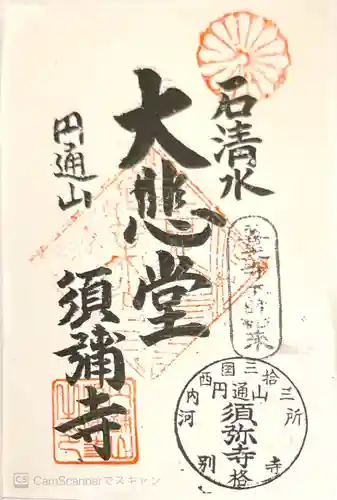 石清水
大悲堂
円通山
須彌寺
西国三拾三所
河内
円通山
須弥寺
別格
寺
CS CamScannerでスキャン